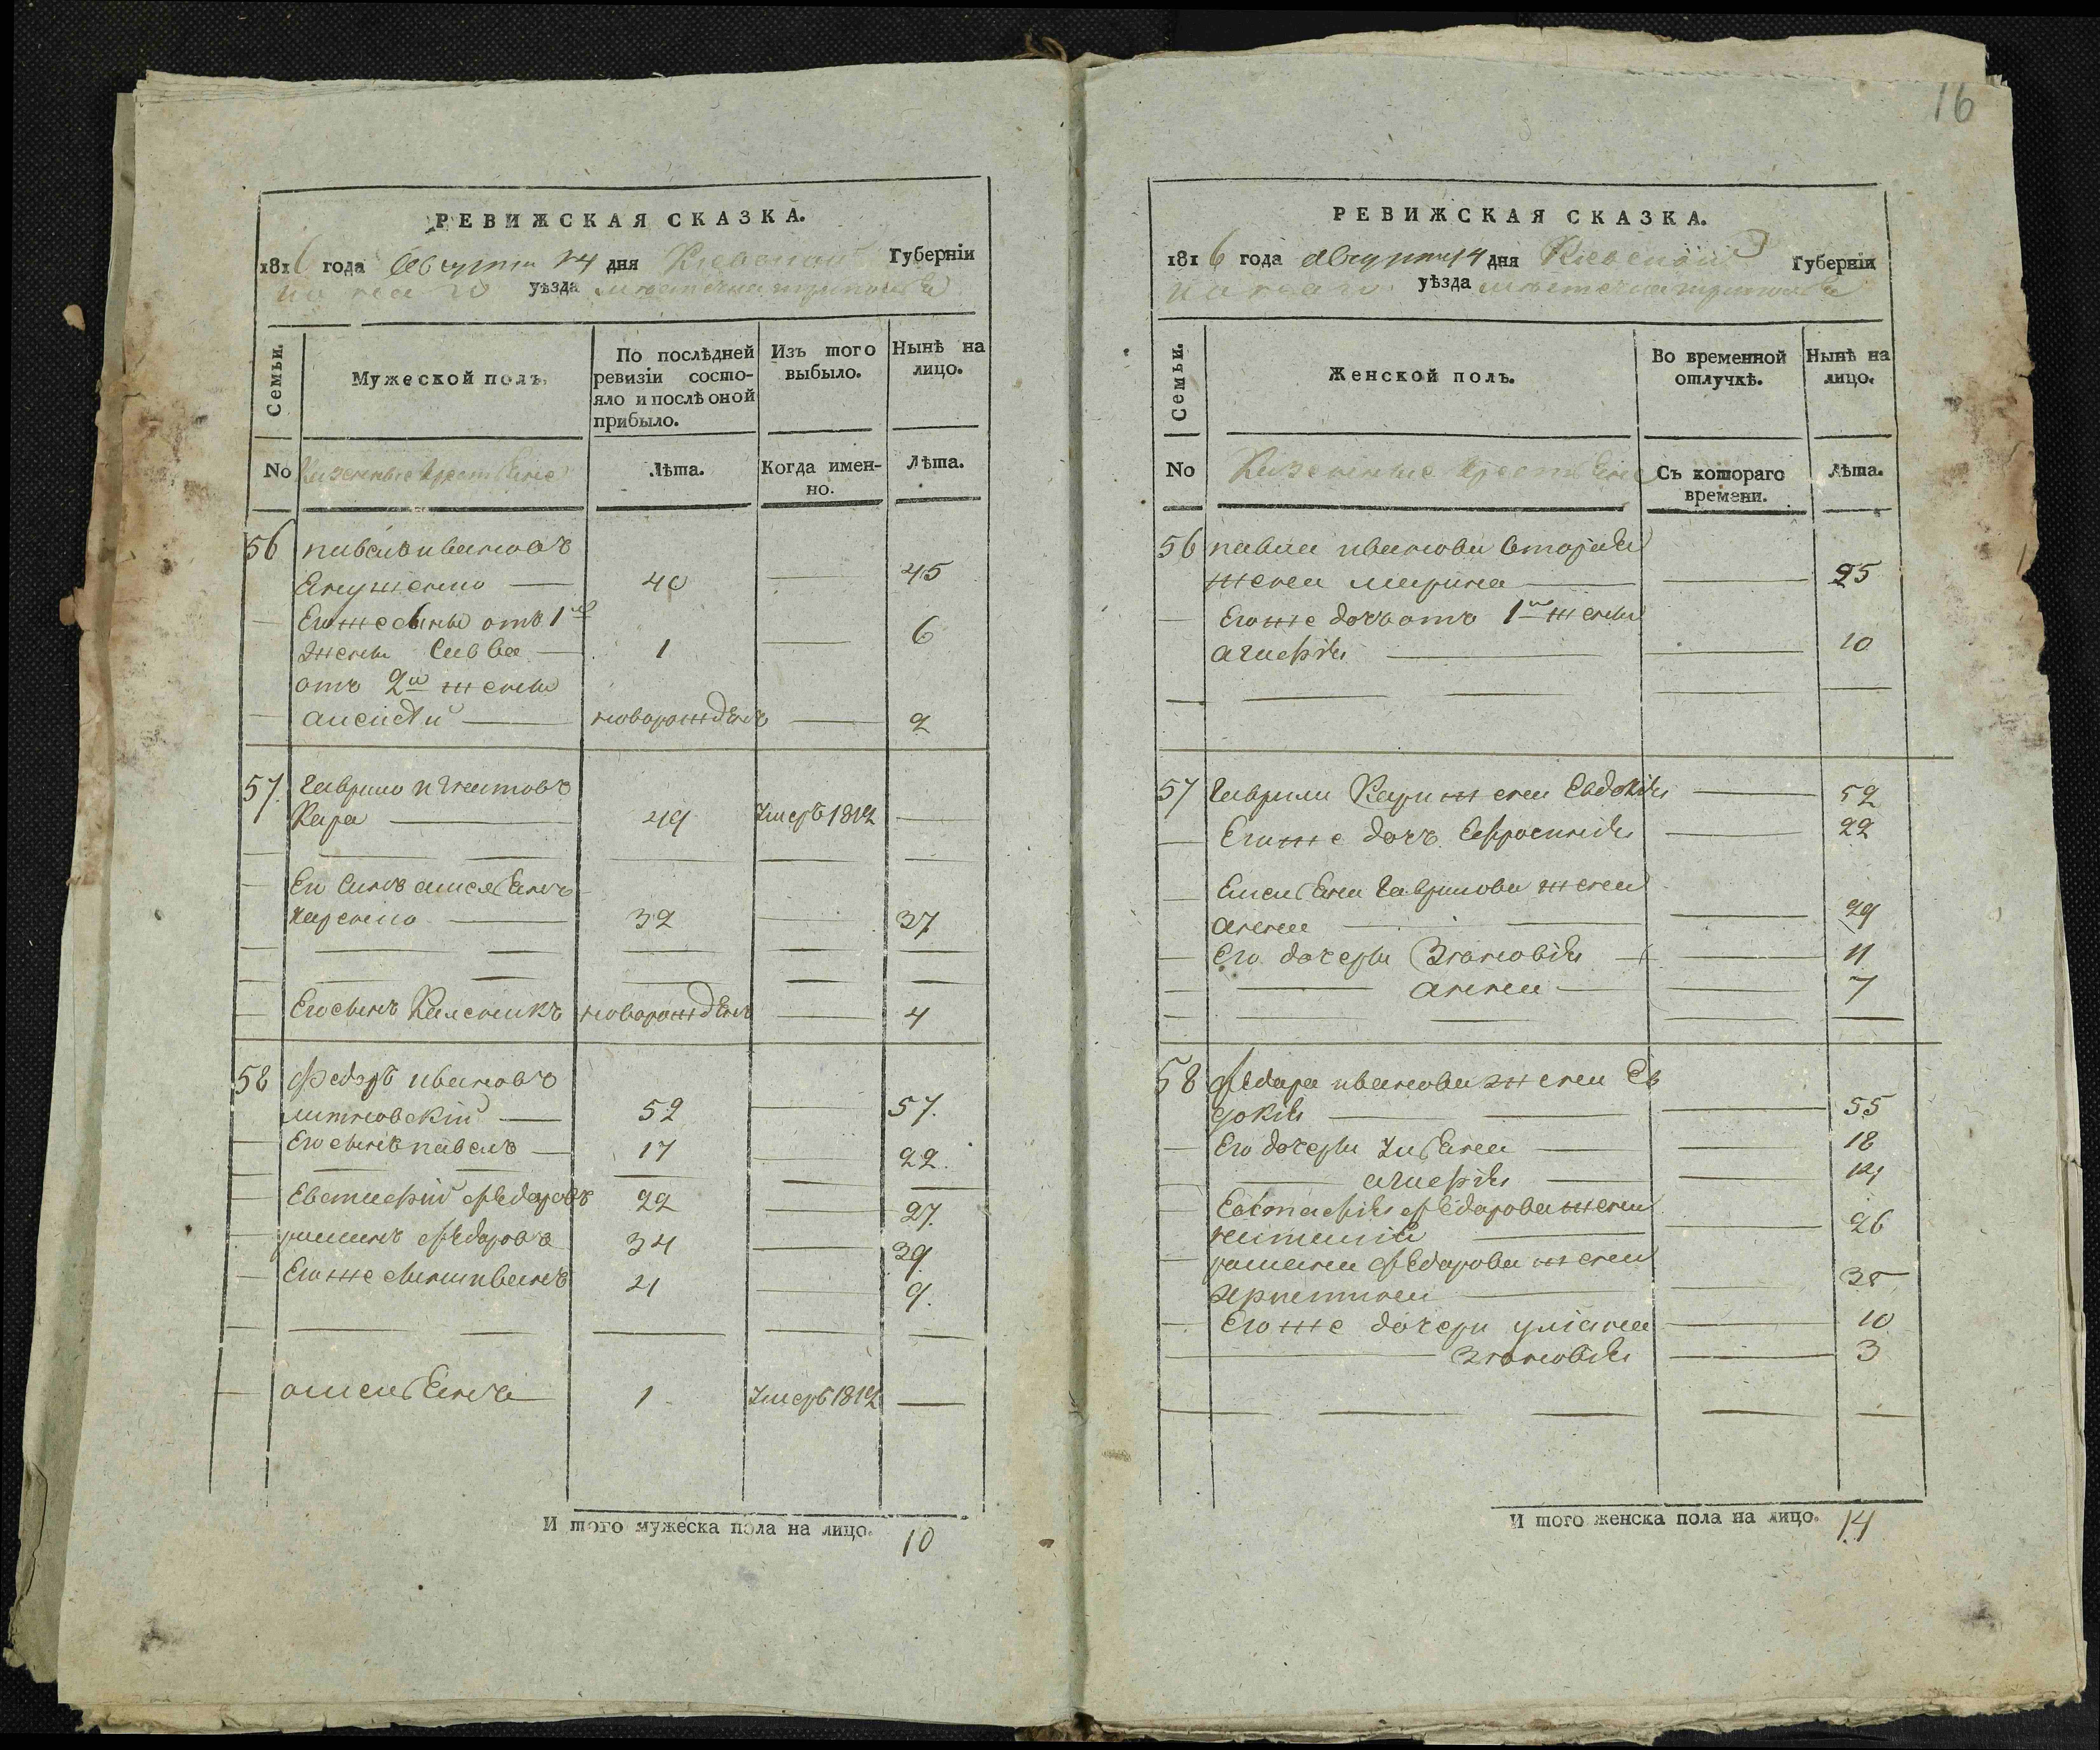 16
РЕВИЖСКАЯ СКАЗКА.
1816 года августа 14 дня Киевской Губерніи
уѣзда местечка триполя
Семьи.
Мужеской полъ.
По послѣдней ревизіи состояло и послѣ оной прибыло.
Изъ того выбыло.
Нынѣ на лицо.
No
Лѣта.
Когда именно.
Лѣта.
56 павелъ ивановъ
40 — 45
Егоже сынъ отъ 1й
жены Савва — 1 — 6
отъ 2й жены
алексей — новорожденъ — 2
57 гаврило игнатовъ
Кара — 49 Умеръ 1812 —
Его Синъ
32 — 37
Его сынъ новорожденъ — 4
58 федоръ ивановъ
литновскій — 52 — 57.
Его сынъ павелъ — 17 — 22.
Евстафій федоровъ 22 — 27.
романъ федоровъ 34 — 39
Егоже сынъ иванъ 4 — 9.
1 Умеръ 1812 —
И того мужеска пола на лицо. 10
РЕВИЖСКАЯ СКАЗКА.
1816 года августа 14 дня Киевской Губерніи
уѣзда местечка триполя
Семьи.
Женской полъ.
Во временной отлучкѣ.
Нынѣ на лицо.
No
Казенные крестьяне
Съ котораго времени.
Лѣта.
56 павла иванова вторая
жена марина — — 25
Егоже дочь отъ 1й жены
агафія — — 10
57 гаврили Кари жена Евдокія — 52
Егоже дочь Ефросинія — 22
гаврилова жена
анна — — 29
Его дочери Зѣновія — — 11
— анна — — 7
58 федора иванова жена Ев
докія — — 55
Его дочери Уліана — — 18
— агафія — — 14
Евстафія федорова жена
наталія — — 26
романа федорова жена
— 38
Егоже дочери уліана — 10
— Зѣновія — 3
И того женска пола на лицо. 14